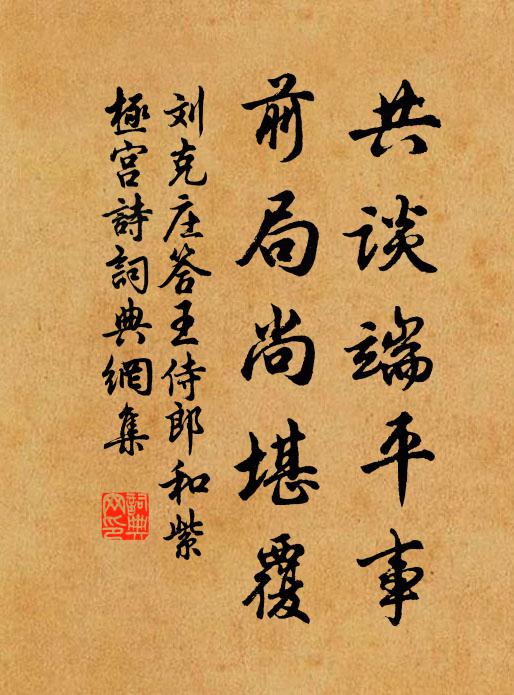 共谈端平事
前局尚堪覆
刘克庄答王侍郎和紫
極宫詩詞典網集
詞典
网印